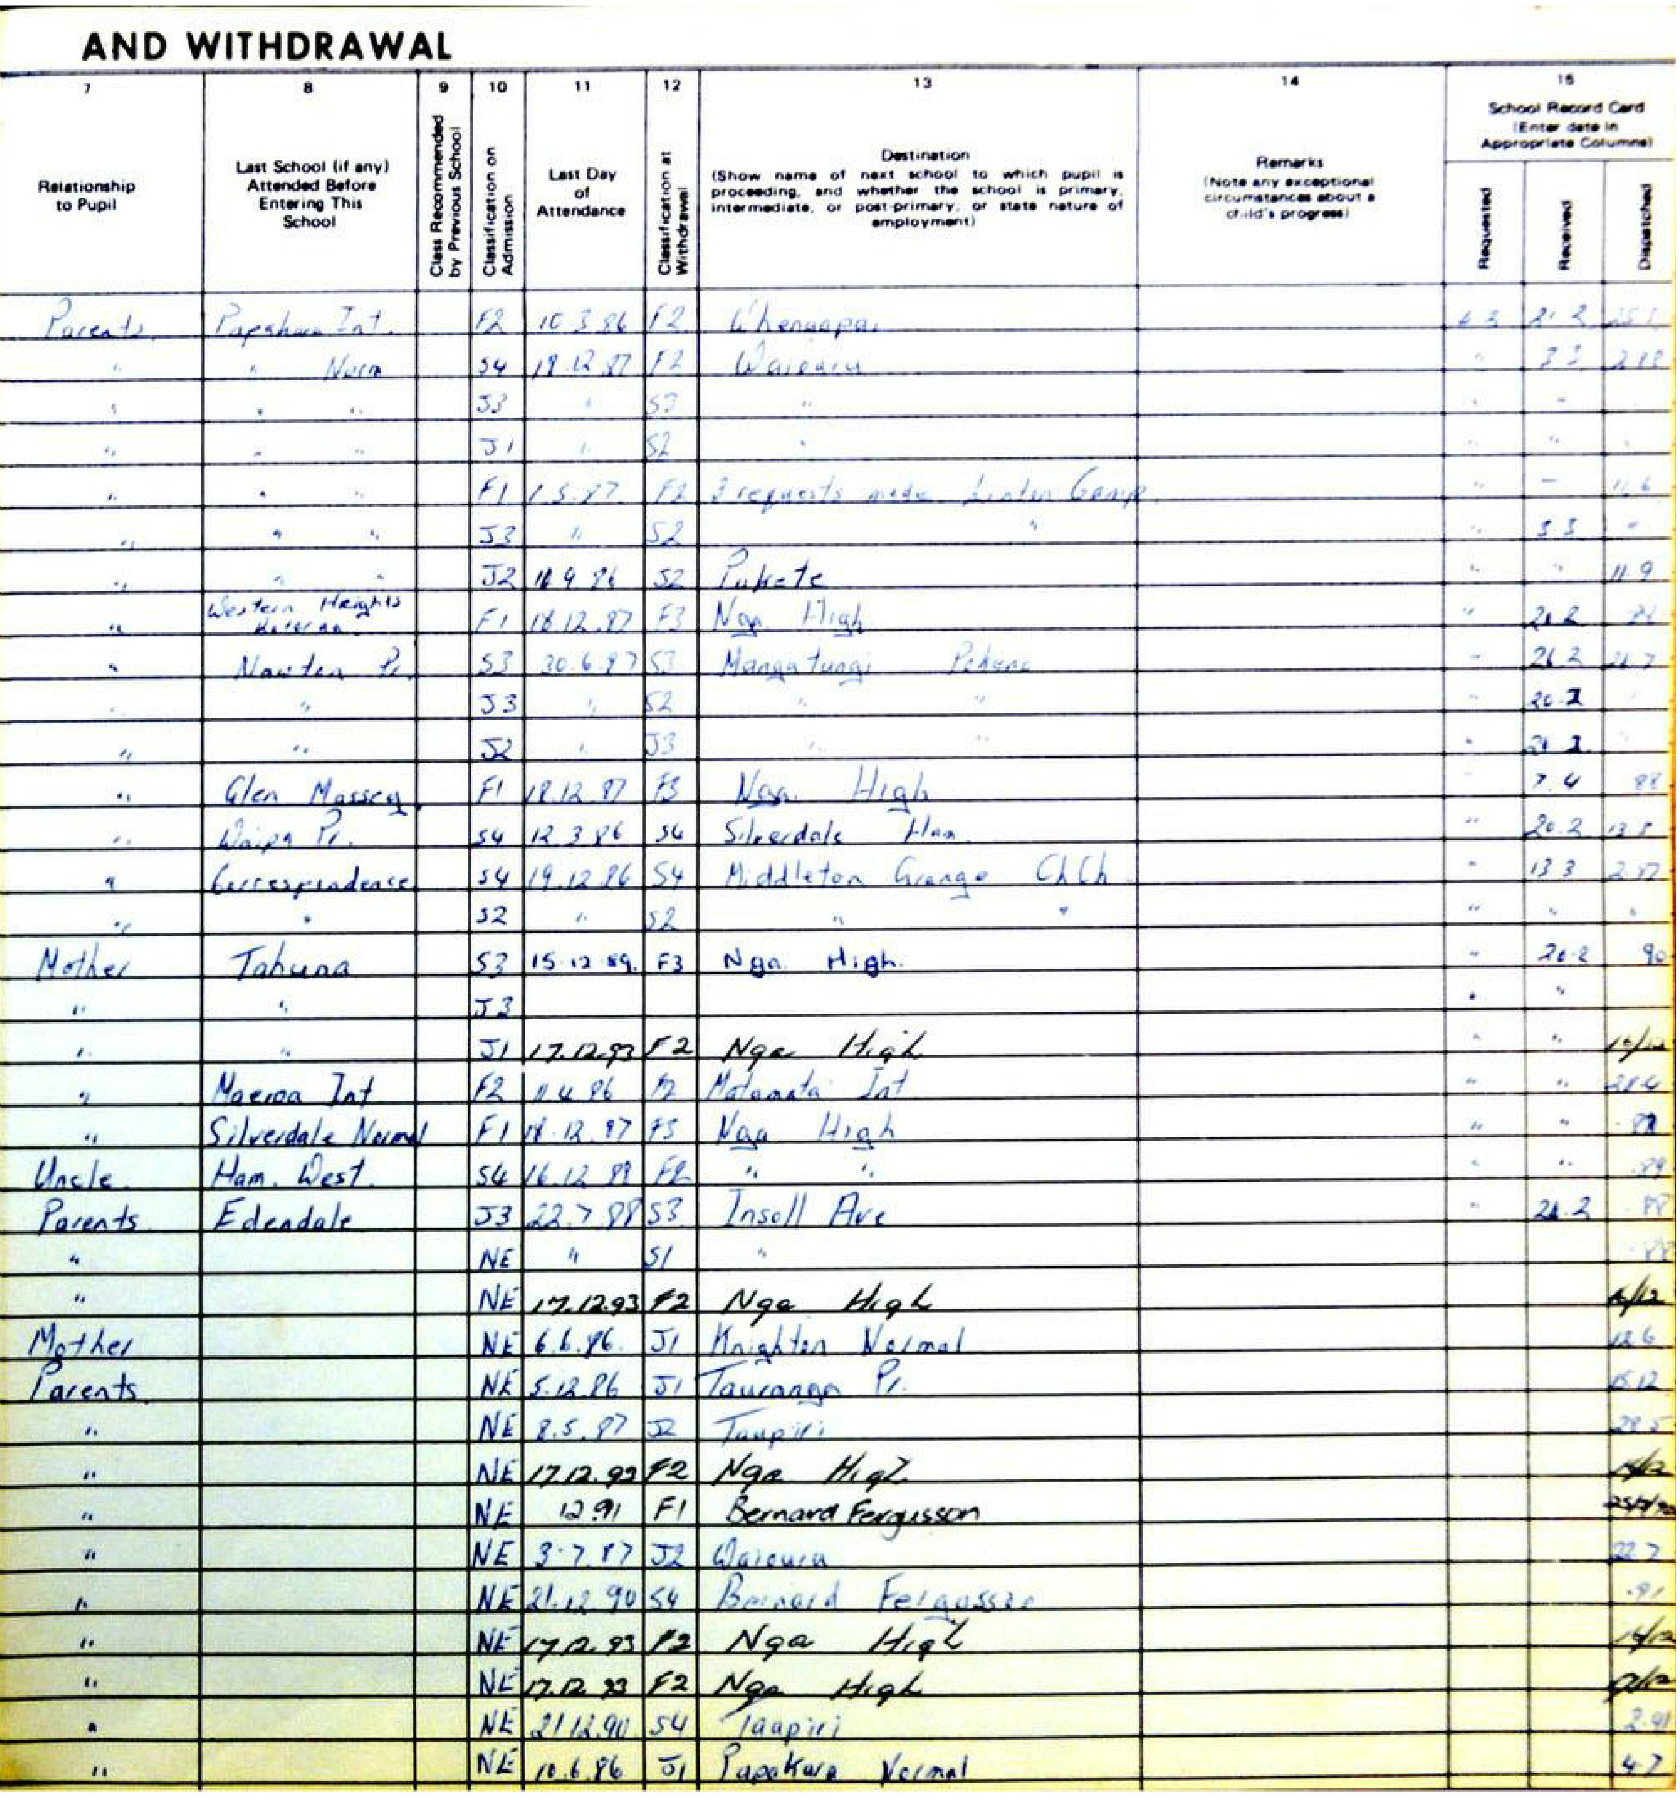 AND WITHDRAWAL
7 8 9 10 11 12 13 14 15
Relationship to Pupil
Last School (if any) Attended Before Entering This School
Class Recommended by Previous School
Classification on Admission
Last Day of Attendance
Classification at Withdrawal
Destination
(Show name of next school to which pupil is proceeding, and whether the school is primary, intermediate, or post-primary, or state nature of employment)
Remarks
(Note any exceptional circumstances about a child's progress)
School Record Card
(Enter date in Appropriate Columns)
Requested
Received
Dispatched
Parents Papakura Int. F2 10.3.86 F2 Whenuapai 21.2
" " Norm S4 18.12.87 F2 Waiouru " 3.3
" " " J3 " S3 " " "
" " " J1 " S2 " " " "
" " " F1 1.5.87 F2 3 requests made. Linton Camp. " – 11.6
" " " J3 " S2 " " 3.3 "
" " " J2 10.9.86 S2 Pukete " " 11.9
" Western Heights Rotorua F1 18.12.87 F3 Nga High " 21.2
" Nawton Pr. S3 30.6.87 S3 Mangatangi Pokeno " 21.2 21.7
" " J3 " S2 " " "
" " J2 " J3 " " "
" Glen Massey F1 18.12.87 F3 Nga. High 7.4 88
" Waipa Pr. S4 12.3.86 S4 Silverdale Ham " 20.2
" Correspondence S4 19.12.86 S4 Middleton Grange ChCh " 13.3 2.87
" " S2 " S2 " " " " "
Mother Tahuna S3 15.12.89. F3 Nga High. " 20.2 90
" " J3 " "
" " J1 17.12.93 F2 Nga High " "
" Maeroa Int F2 11.4.86 F2 Matamata Int " "
" Silverdale Normal F1 18.12.87 F3 Nga High " "
Uncle Ham. West. S4 16.12.88 F2 " " " " .89
Parents Edendale J3 22.7.88 S3 Insoll Ave " 21.2 .88
" NE " S1 " .88
" NE 17.12.93 F2 Nga High
Mother NE 6.6.86. J1 Knighton Normal 12.6
Parents NE 5.12.86 J1 Tauranga Pr. 15.12
" NE 8.5.87 J2 Taupiri 28.5
" NE 17.12.93 F2 Nga High
" NE 12.91 F1 Bernard Fergusson
" NE 3.7.87 J2 Waiouru 22.7
" NE 21.12.90 S4 Bernard Fergusson .91
" NE 17.12.93 F2 Nga High
" NE 17.12.93 F2 Nga High
" NE 21.12.90 S4 Taupiri 2.91
" NE 10.6.86 J1 Papakura Normal 4.7